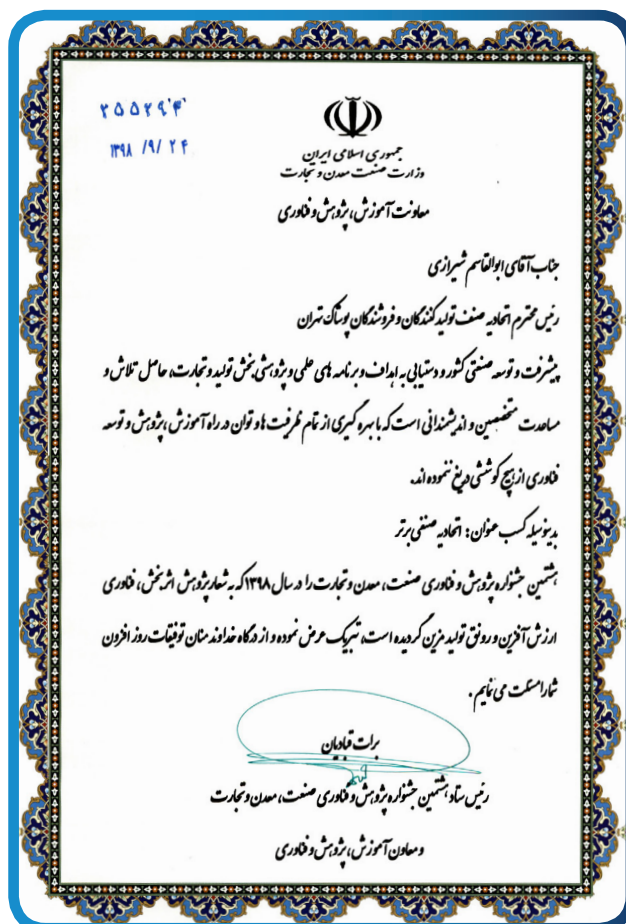 ۲۵۵۲۹۴
۱۳۹۸ /۹/ ۲۴
جمهوری اسلامی ایران
وزارت صنعت معدن و تجارت
معاونت آموزش، پژوهش و فناوری
جناب آقای ابوالقاسم شیرازی
رئیس محترم اتحادیه صنف تولید کنندگان و فروشندگان پوشاک تهران
پیشرفت و توسعه صنعتی کشور و دستیابی به اهداف و برنامه های علمی و پژوهشی بخش تولید و تجارت، حاصل تلاش و
مساعدت متخصصین و اندیشمندانی است که با بهره گیری از تمام ظرفیت ها و توان در راه آموزش، پژوهش و توسعه
فناوری از هیچ کوششی دریغ ننموده اند.
بدینوسیله کسب عنوان: اتحادیه صنفی برتر
هشتمین جشنواره پژوهش و فناوری صنعت، معدن و تجارت را در سال ۱۳۹۸ که به شعار پژوهش اثربخش، فناوری
ارزش آفرین و رونق تولید مزین گردیده است، تبریک عرض نموده و از درگاه خداوند منان توفیقات روز افزون
شما را مسئلت می نمایم.
برات قبادیان
رئیس ستاد هشتمین جشنواره پژوهش و فناوری صنعت، معدن و تجارت
و معاون آموزش، پژوهش و فناوری